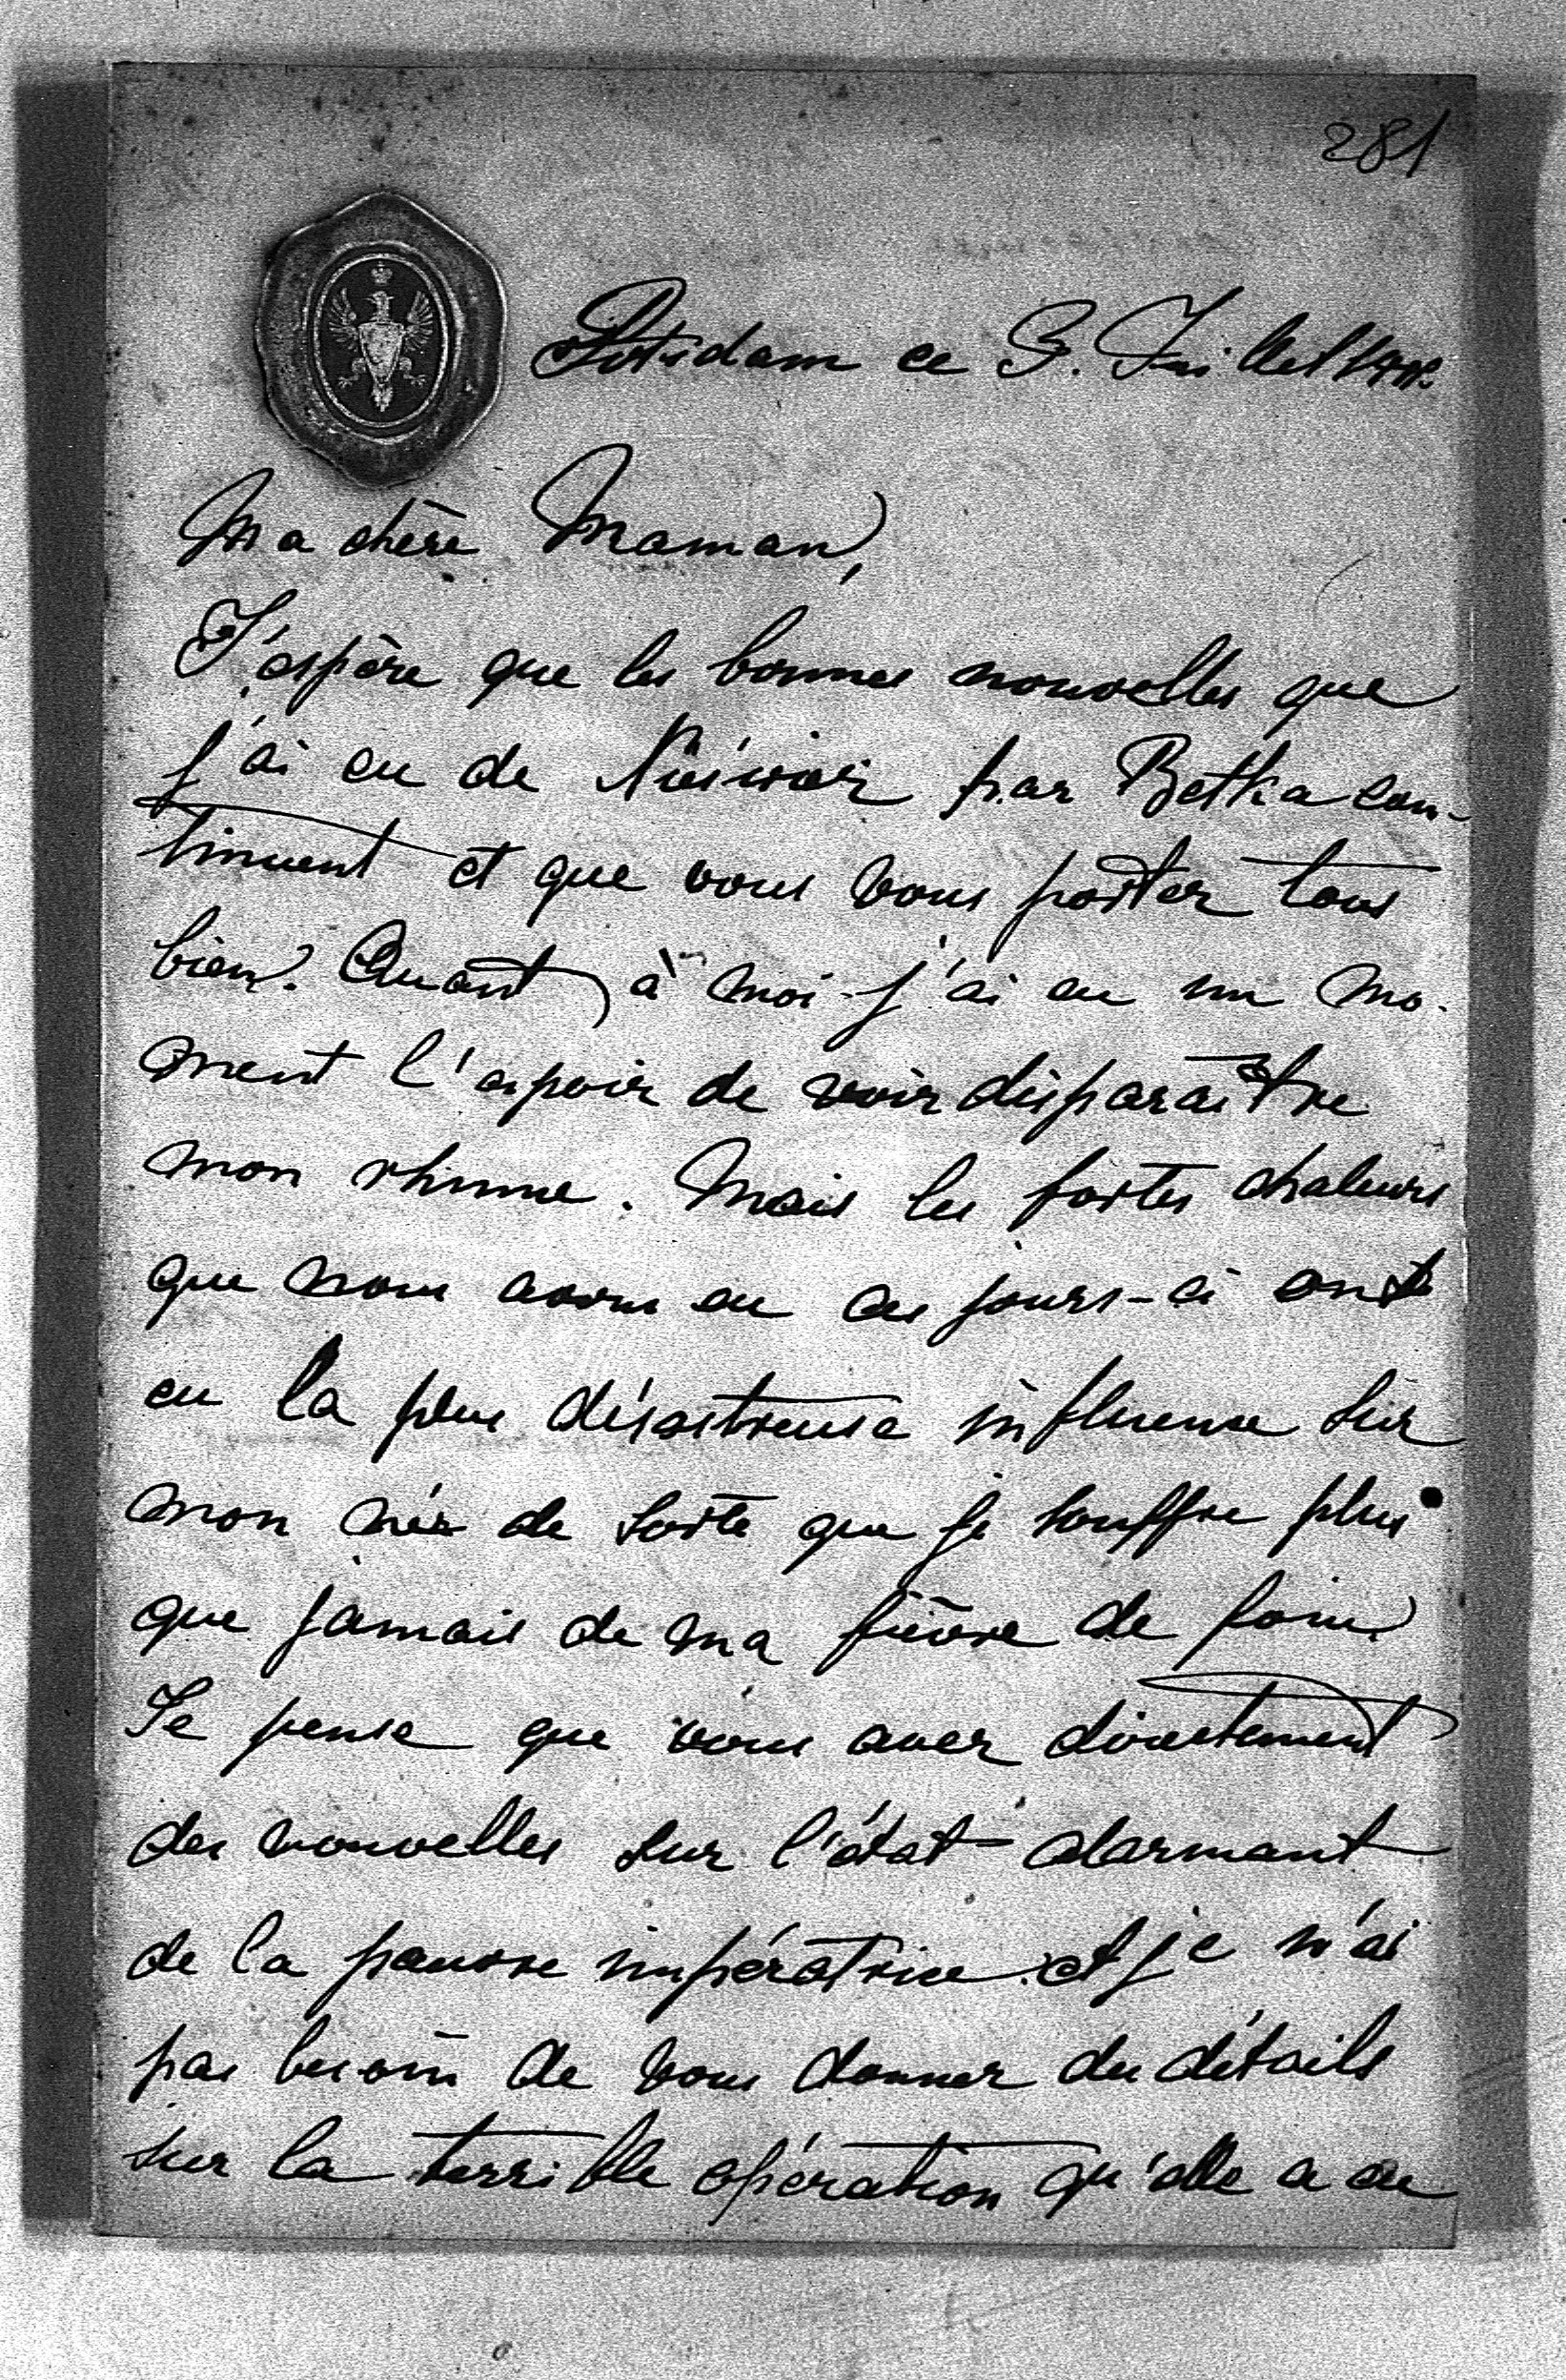 281
Potsdam ce 3. Juillet
Ma chère Maman,
J'espère que les bonnes nouvelles que
j'ai eu de par Betka con-
tinuent et que vous vous porter tous
bien. Quant à moi j'ai eu un mo-
ment l'espoir de voir disparaître
mon rhume. Mais les fortes chaleurs
que nous avons eu ces jours-ci ont
eu la plus désastreuse influence sur
mon néz de sorte que je souffre plus
que jamais de ma fièvre de foin.
Je pense que vous avez directement
des nouvelles sur l'état alarmant
de la pauvre impératrice et je n'ai
pas besoin de vous donner des détails
sur la terrible opération qu'elle a eu